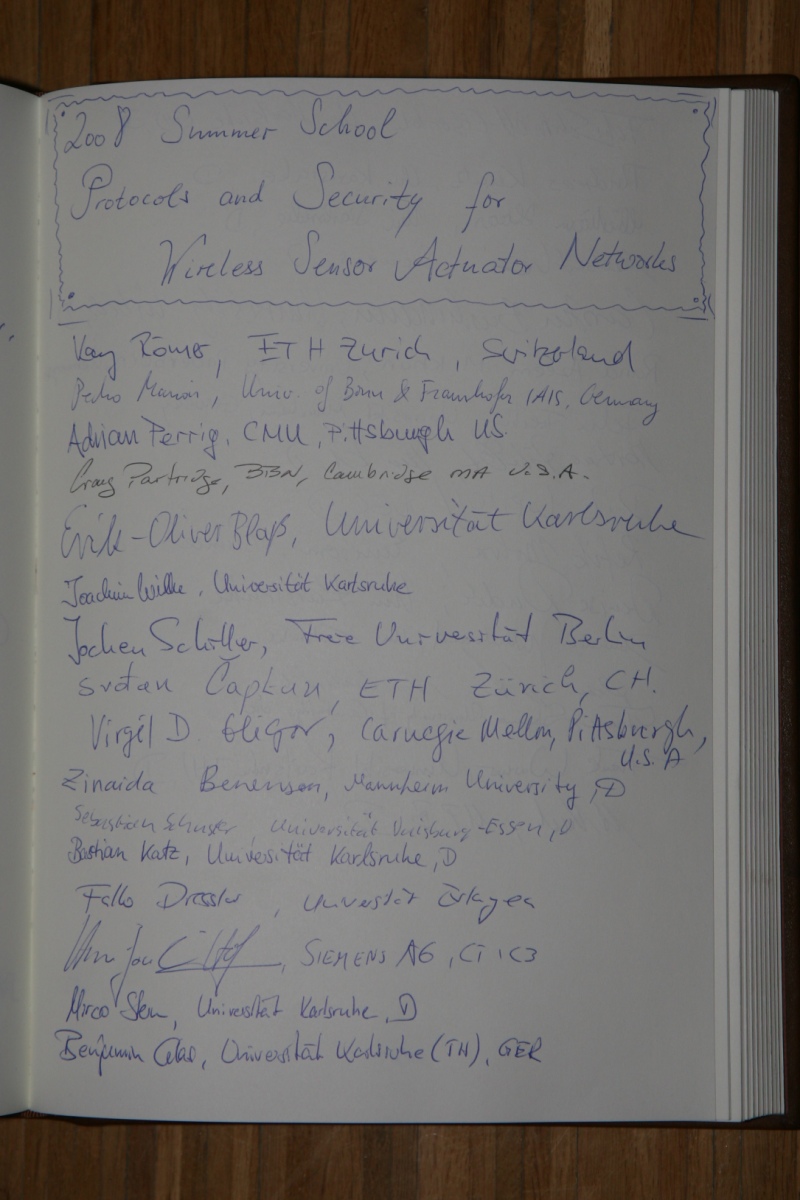 2008 Summer School
Protocols and Security for
Wireless Sensor Actuator Networks
Kay Römer, ETH Zurich, Switzerland
Pedro Marrón, Univ. of Bonn & Fraunhofer IAIS, Germany
Adrian Perrig, CMU, Pittsburgh US
Craig Partridge, BBN, Cambridge MA U.S.A.
Erik-Oliver Blaß, Universität Karlsruhe
Joachim Wilke, Universität Karlsruhe
Jochen Schiller, Freie Universität Berlin
Srdjan Čapkun, ETH Zürich, CH.
Virgil D. Gligor, Carnegie Mellon, Pittsburgh,
U.S.A
Zinaida Benenson, Mannheim University, D
Sebastian Schuster, Universität Duisburg-Essen, D
Bastian Katz, Universität Karlsruhe, D
Falko Dressler, Universität Erlangen
SIEMENS AG, CT IC3
Mirco Stern, Universität Karlsruhe, D
Benjamin Glas, Universität Karlsruhe (TH), GER